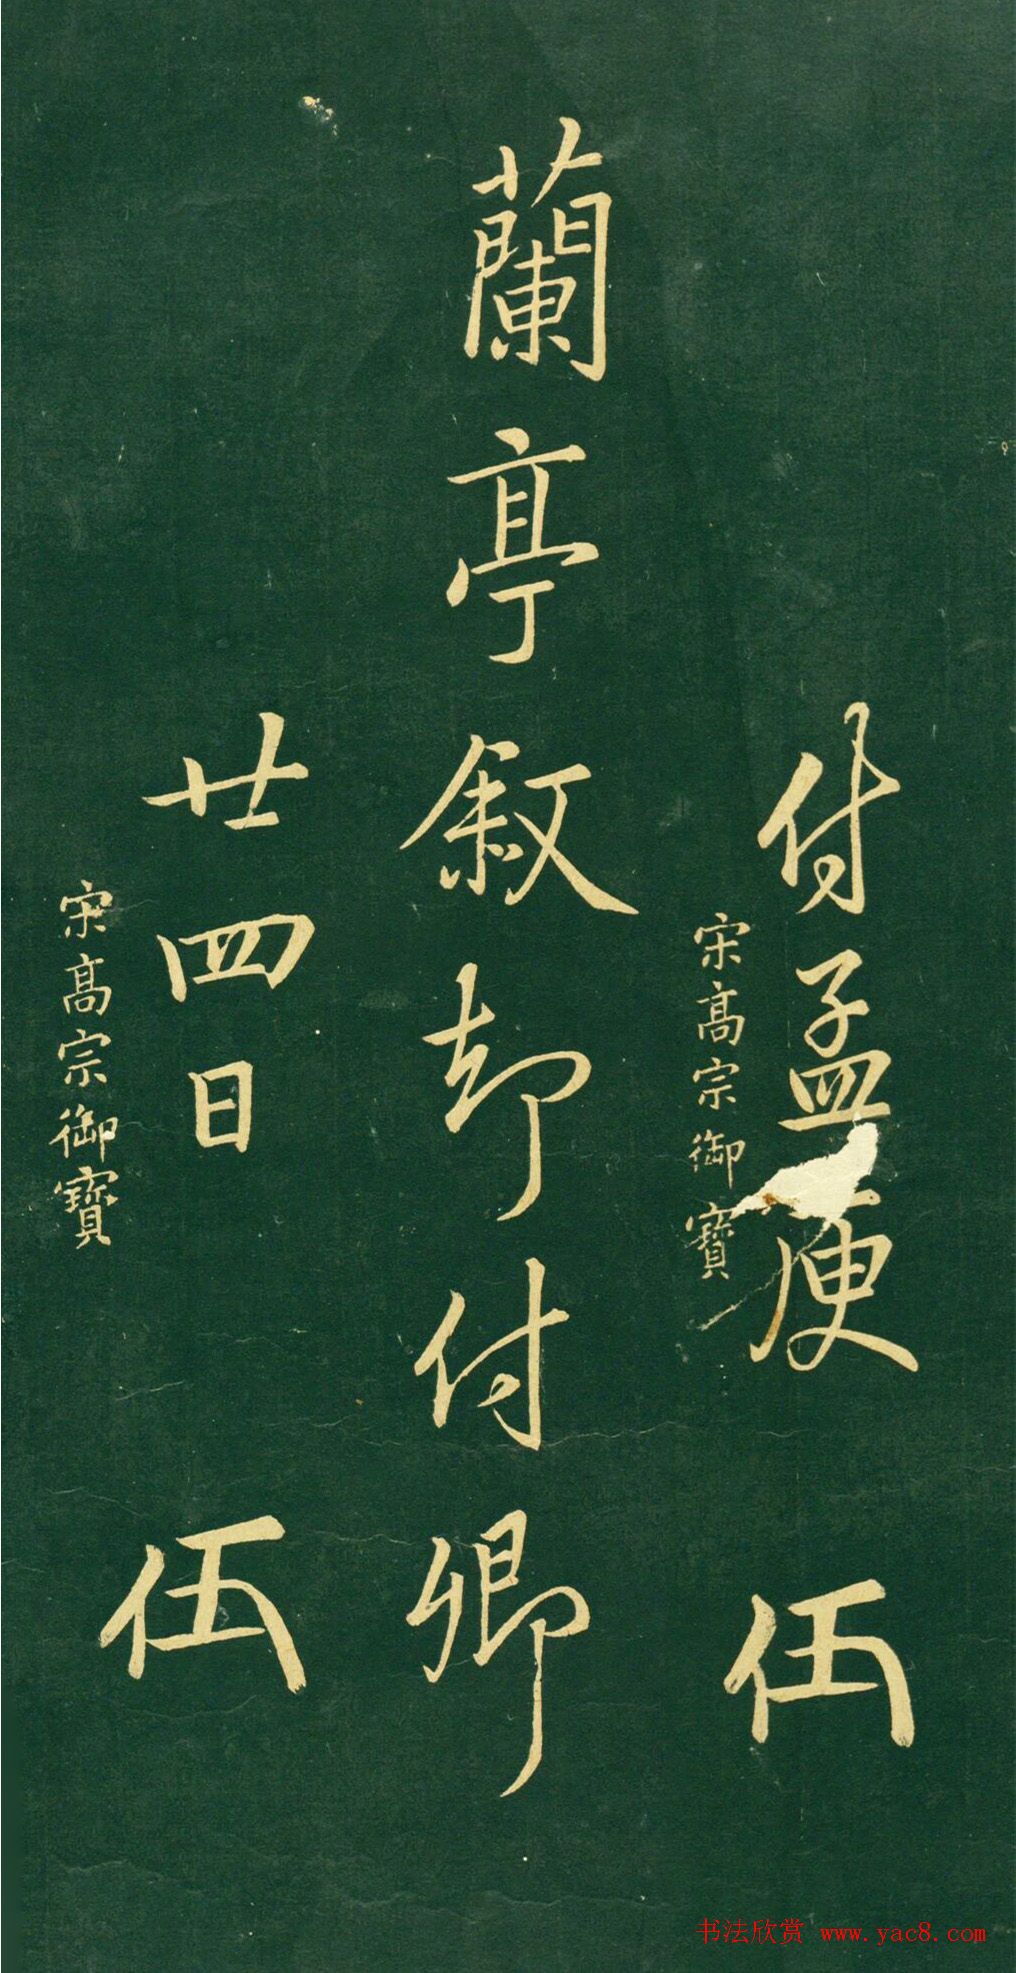 付孟庾 伍
宋高宗御寶
蘭亭敘却付卿
廿四日 伍
宋高宗御寶
书法欣赏 www.yac8.com